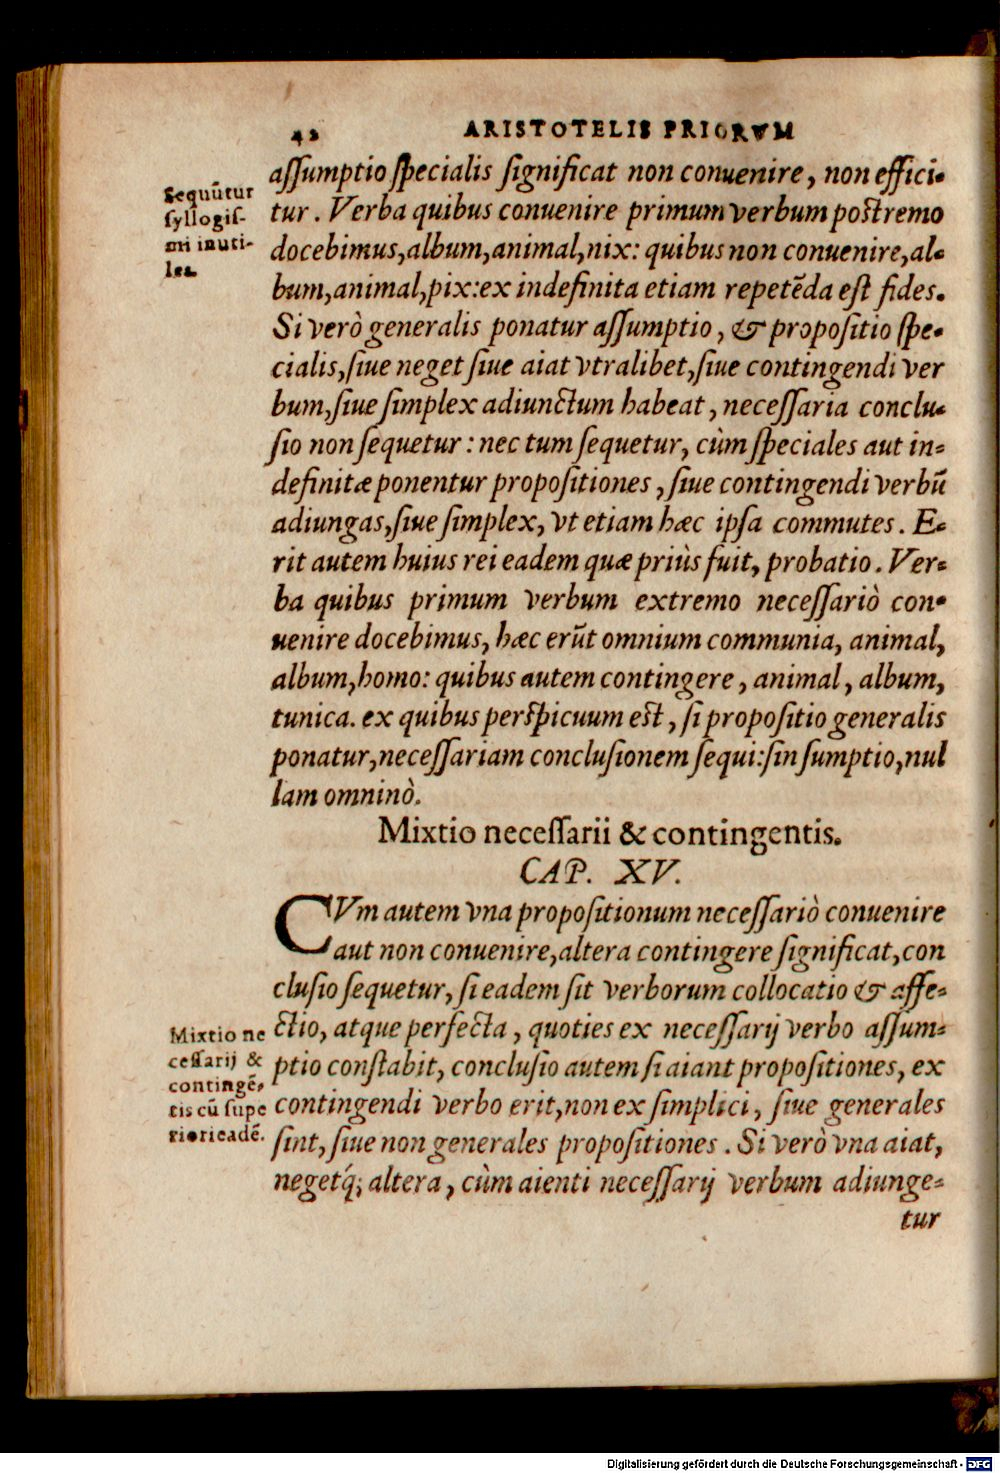 42 ARISTOTELIS PRIORVM
aſſumptio ſpecialis ſignificat non conuenire, non effici-
tur. Verba quibus conuenire primum verbum postremo
docebimus,album,animal,nix: quibus non conuenire,al-
bum,animal,pix:ex indefinita etiam repetēda est fides.
Si verò generalis ponatur aſſumptio, & propoſitio ſpe-
cialis,ſiue neget ſiue aiat vtralibet,ſiue contingendi ver
bum,ſiue ſimplex adiunctum habeat, neceſſaria conclu-
ſio non ſequetur: nec tum ſequetur, cùm ſpeciales aut in-
definitæ ponentur propoſitiones, ſiue contingendi verbū
adiungas,ſiue ſimplex, vt etiam hæc ipſa commutes. E-
rit autem huius rei eadem quæ priùs fuit, probatio. Ver-
ba quibus primum verbum extremo neceſſariò con-
uenire docebimus, hæc erūt omnium communia, animal,
album,homo: quibus autem contingere, animal, album,
tunica. ex quibus perſpicuum est, ſi propoſitio generalis
ponatur,neceſſariam concluſionem ſequi:ſin ſumptio,nul
lam omninò.
Sequūtur
ſyllogiſ-
mi inuti-
les.
Mixtio neceſſarii & contingentis.
CAP. XV.
CVm autem vna propoſitionum neceſſariò conuenire
aut non conuenire,altera contingere ſignificat,con
cluſio ſequetur, ſi eadem ſit verborum collocatio & affe-
ctio, atque perfecta, quoties ex neceſſarij verbo aſſum-
ptio constabit, concluſio autem ſi aiant propoſitiones, ex
contingendi verbo erit,non ex ſimplici, ſiue generales
ſint, ſiue non generales propoſitiones. Si verò vna aiat,
negetq́; altera, cùm aienti neceſſarij verbum adiunge-
tur
Mixtio ne
ceſſarij &
contingē-
tis cū ſupe
riori eadē.
Digitalisierung gefördert durch die Deutsche Forschungsgemeinschaft - DFG